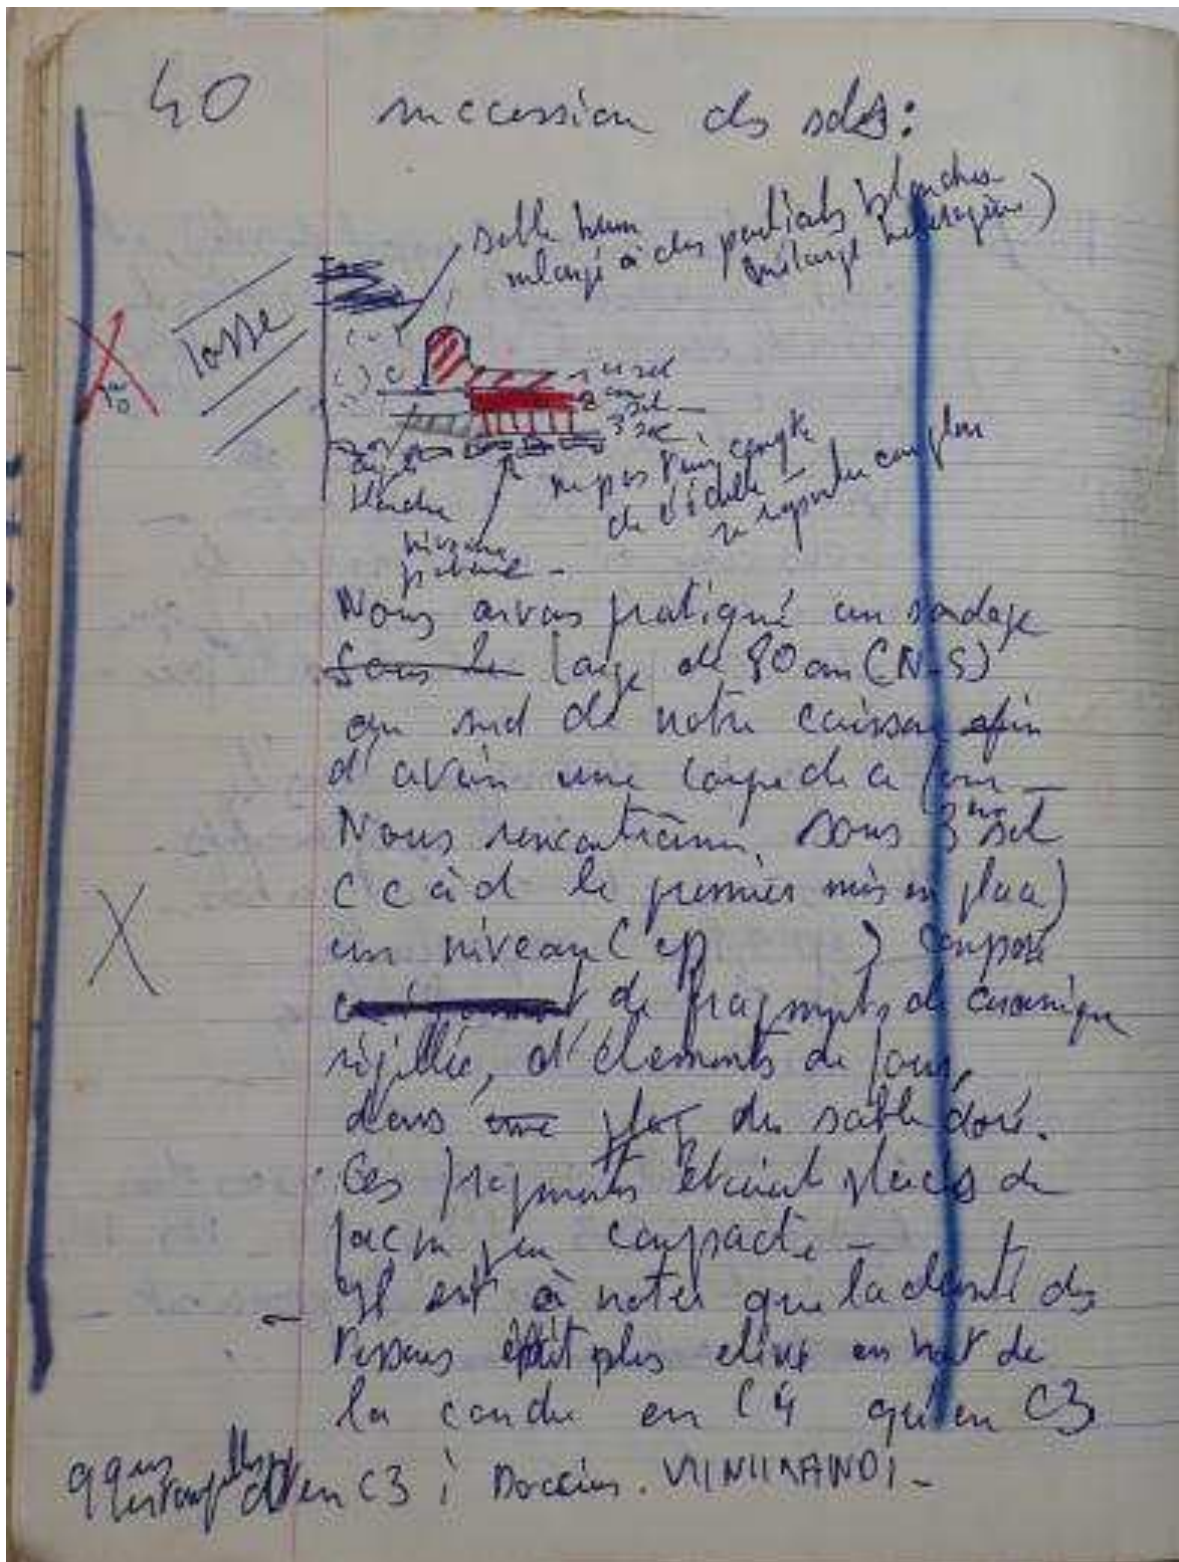 40
succession des sols :
sable brun
mélangé à des particules blanches
(mélange hétérogène)
fosse
1 er sol
2 em sol
3 sol
blanche
ne pas tenir compte
de l'échelle -
niveau
Nous avons pratiqué un sondage
sous le large de 80 cm (N-S)
au sud de notre caisson afin
d'avoir une coupe de ce four -
Nous rencontrâmes, sous 3 sol
(c à d le premier mis en place)
un niveau ( ep ) composé
de fragments de céramique
sigillée, d'éléments de four,
dans une du sable doré.
Ces fragments étaient placés de
façon peu compacte -
Il est à noter que la densité des
tessons était plus elévé en haut de
la couche en C4 qu'en C3
en C3 ; Doccius . VIINIIRANDI -